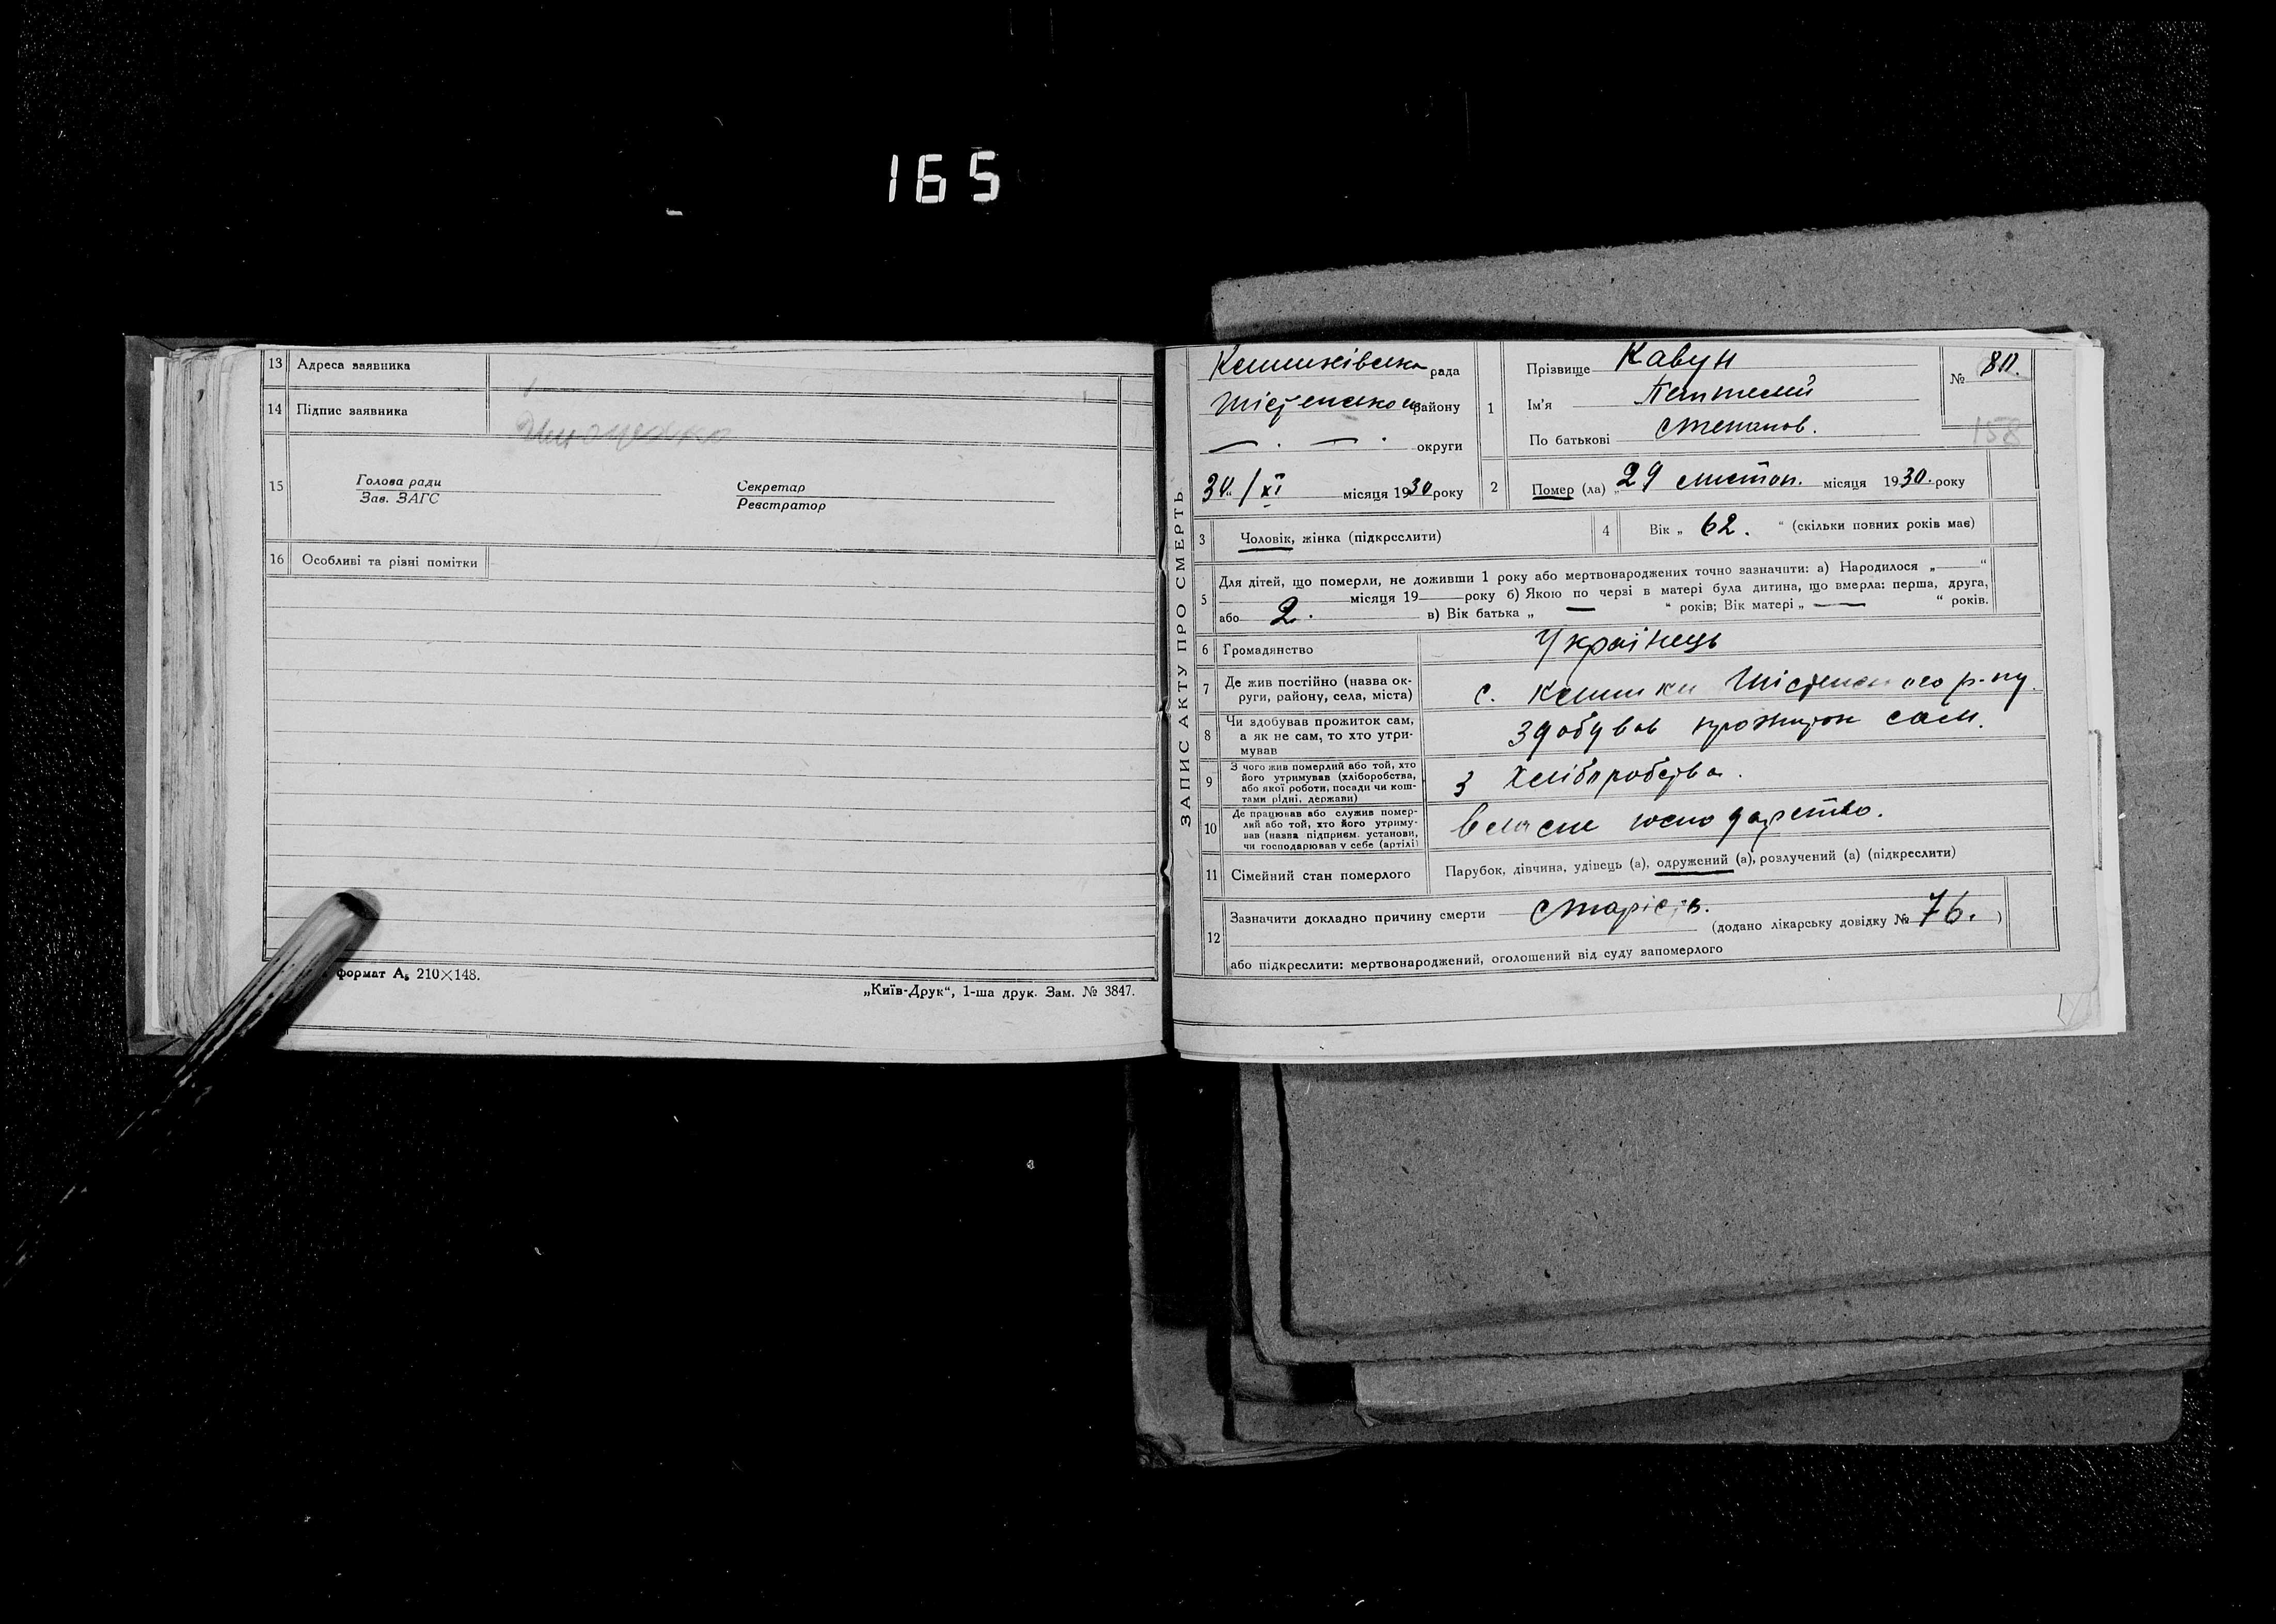 165
13 Адреса заявника
14 Підпис заявника
15 Голова ради
Зав. ЗАГС
Секретар
Реєстратор
16 Особливі та різні помітки
формат А₅ 210×148.
„Київ-Друк“, 1-ша друк. Зам. № 3847.
ЗАПИС АКТУ ПРО СМЕРТЬ
рада
району
— . — . округи
30 “ / XI місяця 1930 року
1 Прізвище Кавун
Ім'я Пантелей
По батькові Степанов.
№ 80.
158
2 Помер (ла) „ 29 листоп. місяця 1930. року
3 Чоловік, жінка (підкреслити)
4 Вік „ 62. “ (скільки повних років має)
5 Для дітей, що померли, не доживши 1 року або мертвонароджених точно зазначити: а) Народилося „ — “
місяця 19 — року б) Якою по черзі в матері була дитина, що вмерла: перша, друга,
або 2. в) Вік батька „ — “ років; Вік матері „ — “ років.
6 Громадянство Українець
7 Де жив постійно (назва округи, району, села, міста) с. р-ну.
8 Чи здобував прожиток сам, а як не сам, то хто утримував здобував прожиток сам.
9 З чого жив померлий або той, хто його утримував (хліборобства, або якої роботи, посади чи коштами рідні, держави) з хліборобства.
10 Де працював або служив померлий або той, хто його утримував (назва підприєм. установи, чи господарював у себе (артілі) власне господарство.
11 Сімейний стан померлого Парубок, дівчина, удівець (а), одружений (а), розлучений (а) (підкреслити)
12 Зазначити докладно причину смерти старість.
(додано лікарську довідку № 76. )
або підкреслити: мертвонароджений, оголошений від суду запомерлого